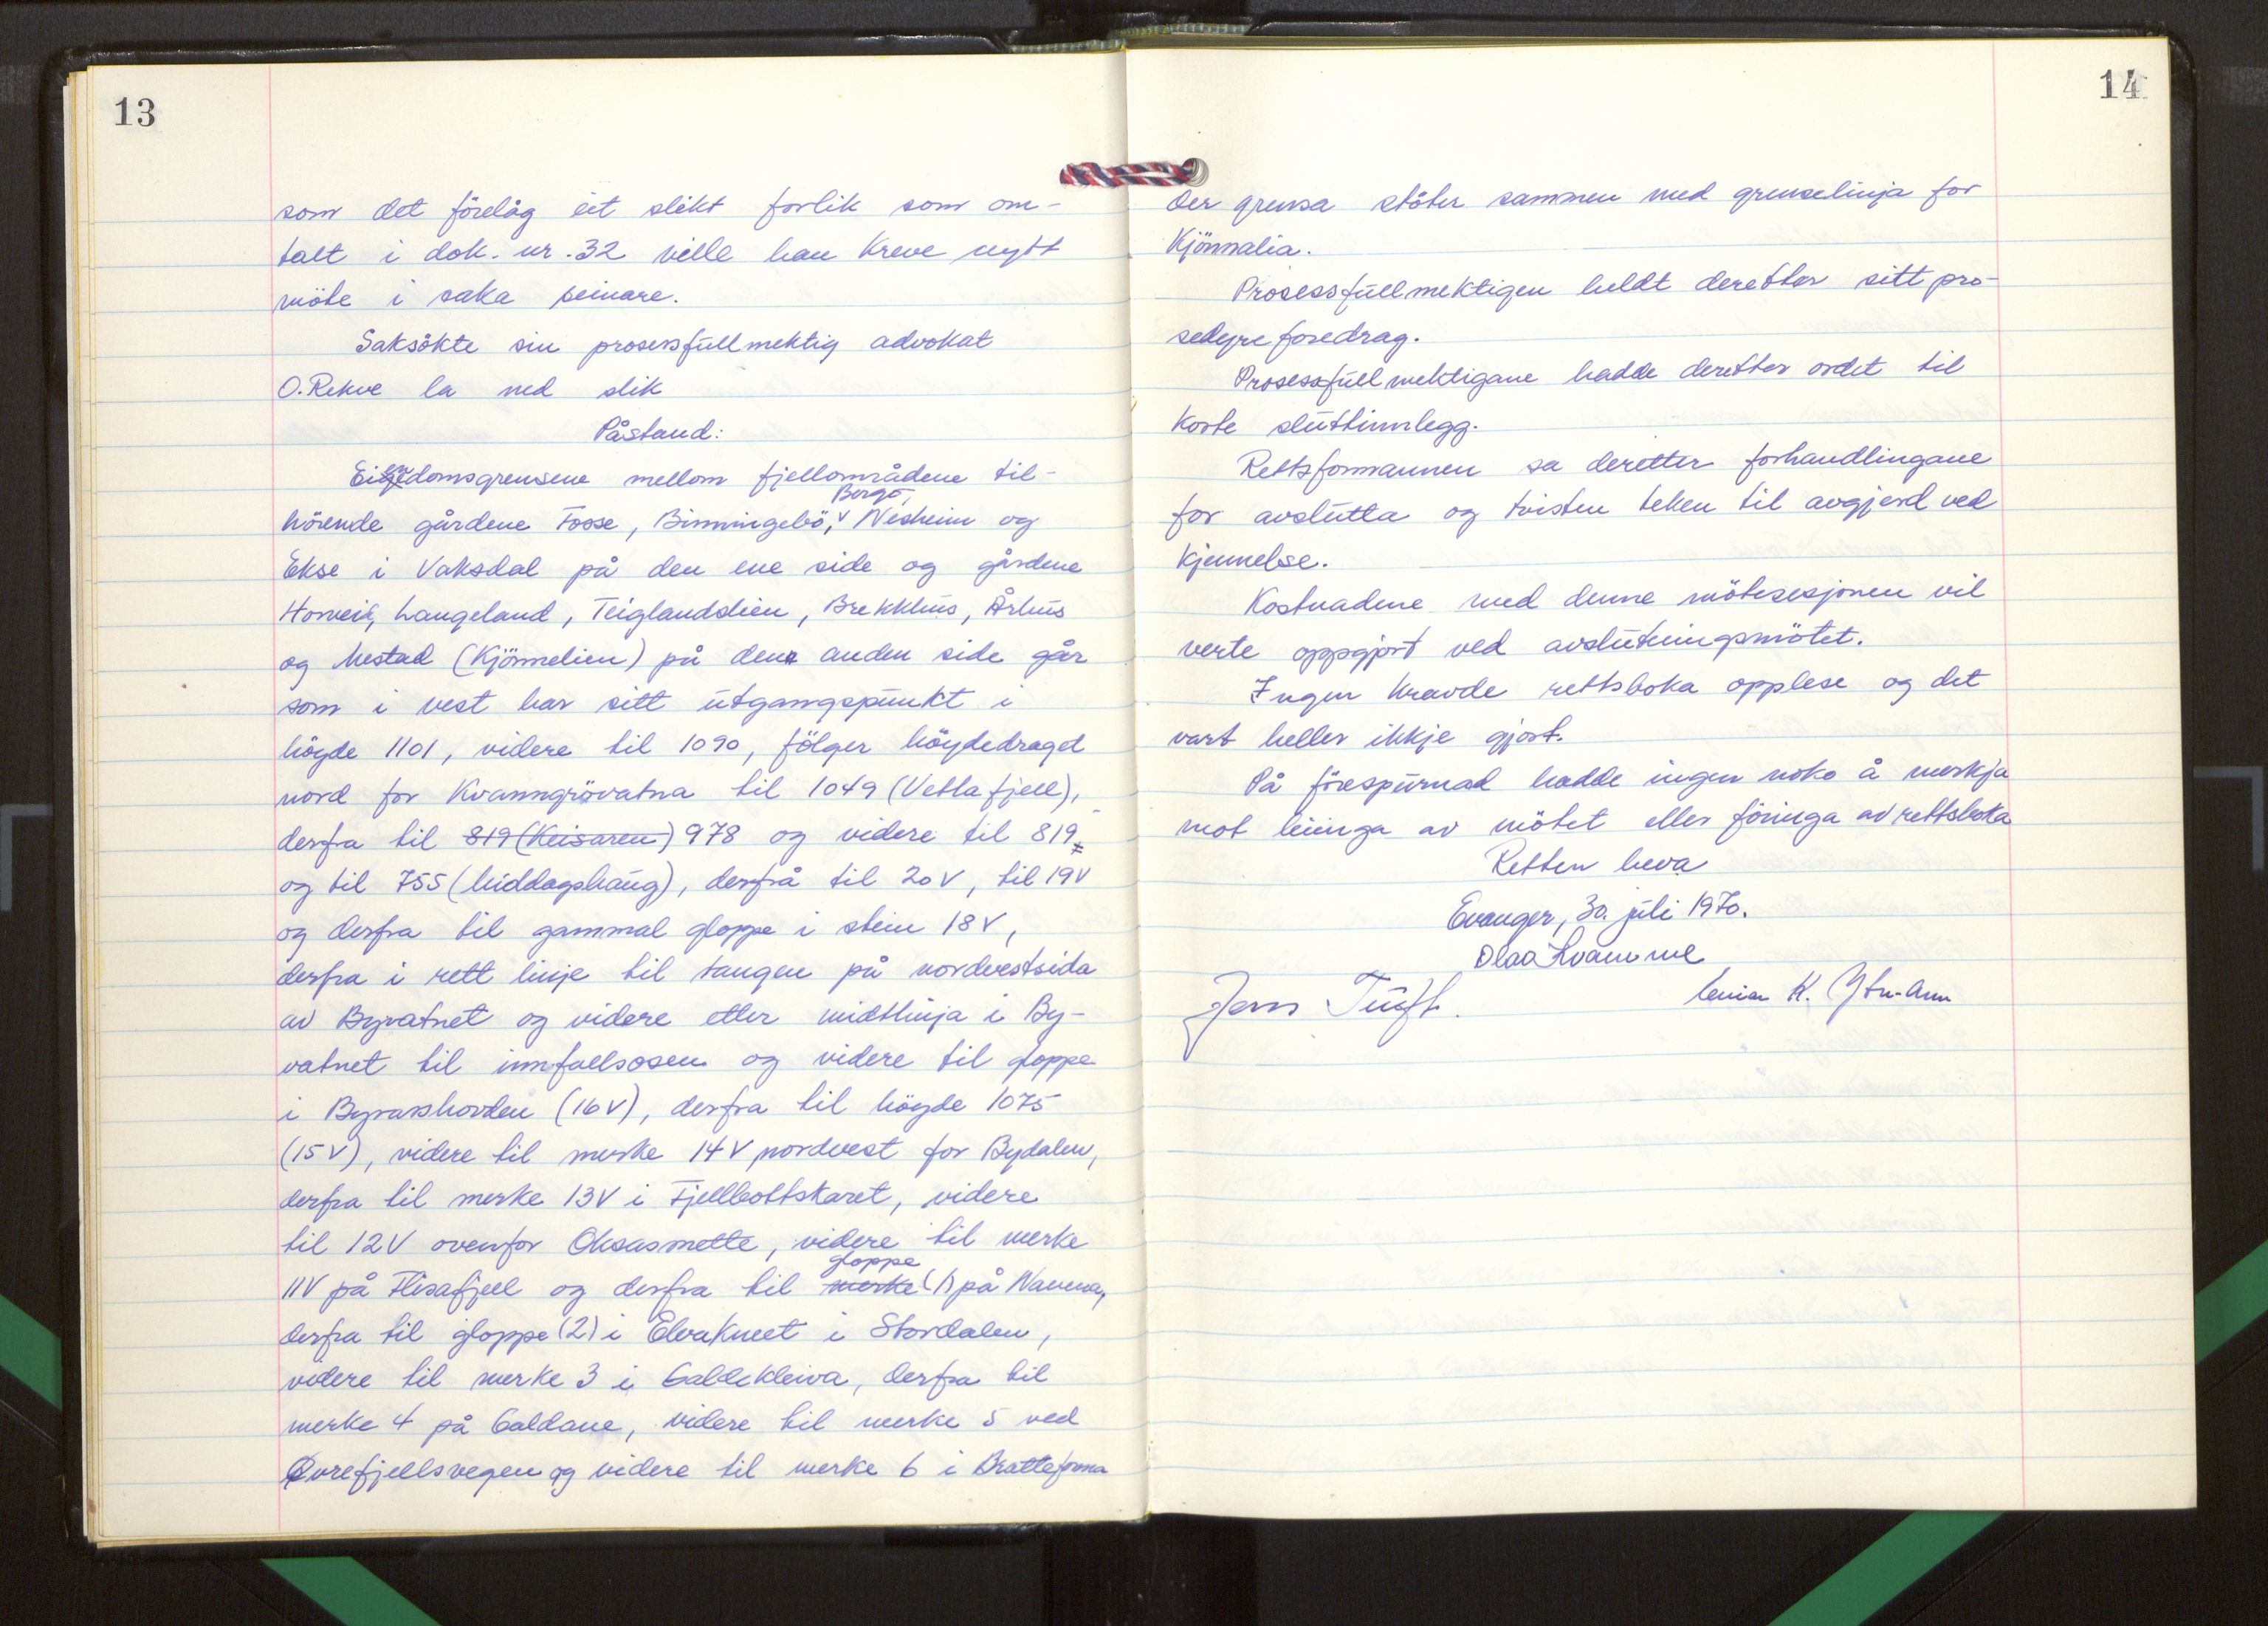 13
som det förelåg eit slikt forlik som om-
talt i dok. nr. 32 ville han kreve nytt
möte i saka seinare.
Saksökte sin prosessfullmektig advokat
O. Rekve la ned slik
Påstand:
Eigedomsgrensene mellom fjellområdene til-
Bergo,
hörende gårdene Fosse, Binningebö, Nesheim og
Ekse i Vaksdal på den ene side og gårdene
Horveid, Langeland, Teiglandslien, Brekkhus, Århus
og Mestad (Kjönnelien) på den anden side går
som i vest har sitt utgangspunkt i
höyde 1101, videre til 1090, fölger höydedraget
nord for Kvanngrövatna til 1049 (Vetlafjell),
derfra til 819 (Keisaren) 978 og videre til 819
og til 755 (Middagshaug), derfrå til 20V, til 19V
og derfra til gammal gloppe i stein 18V,
derfra i rett linje til tangen på nordvestsida
av Byvatnet og videre etter midtlinja i By-
vatnet til innfallsosen og videre til gloppe
i Byvasshorden (16V), derfra til höyde 1075
(15V), videre til merke 14V nordvest for Bydalen,
derfra til merke 13V i Fjellbottskaret, videre
til 12V ovenfor Oksasmette, videre til merke
gloppe
11V på Flisafjell og derfra til merke (1) på Navena,
derfra til gloppe (2) i Elvakneet i Stordalen,
videre til merke 3 i Galdekleiva, derfra til
merke 4 på Galdane, videre til merke 5 ved
Övrefjellsvegen og videre til merke 6 i Bratteforna
14
der grensa stöter sammen med grenselinja for
Kjönnalia.
Prosessfullmektigen heldt deretter sitt pro-
sedyreforedrag.
Prosessfullmektigane hadde deretter ordet til
korte sluttinnlegg.
Rettsformannen sa deretter forhandlingane
for avslutta og tvisten teken til avgjerd ved
kjennelse.
Kostnadene med denne mötesesjonen vil
verte oppgjort ved avslutningsmötet.
Ingen kravde rettsboka opplese og det
vart heller ikkje gjort.
På förespurnad hadde ingen noko å merkja
mot leiinga av mötet eller föringa av rettsboka
Retten heva
Evanger, 30. juli 1970.
Olav Kvamme
Jens Tuft.
K.